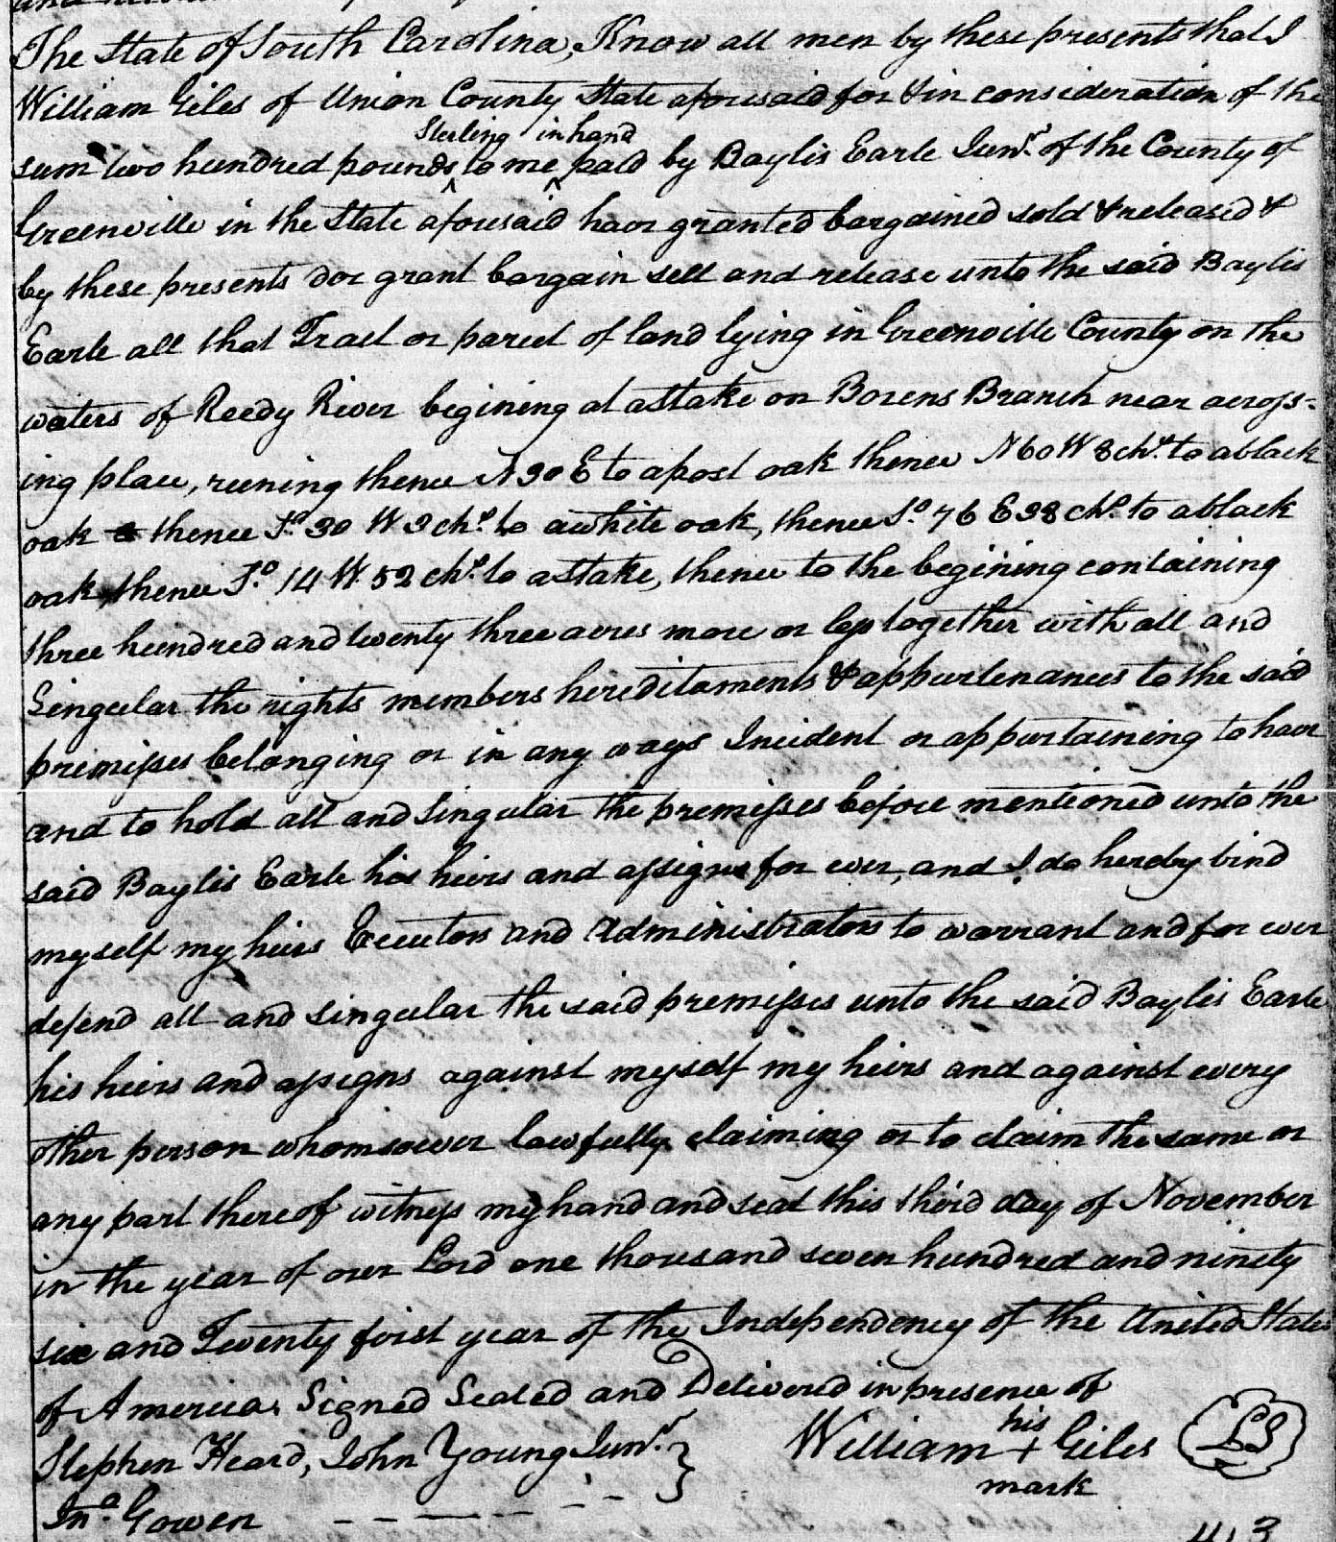 The State of South Carolina, Know all men by these presents that I
William Giles of Union County State aforesaid for & in consideration of the
Sterling in hand
sum two hundred pounds to me paid by Baylis Earle Junr. of the County of
Greenville in the State aforesaid have granted bargained sold & released &
by these presents doe grant bargain sell and release unto the said Baylis
Earle all that Tract or parcel of land lying in Greenville County on the
waters of Reedy River begining at a stake on Borens Branch near a cross-
ing place, runing thence N 30 E to a post oak thence N 60 W 8 chs. to a black
oak thence So. 30 W 3 chs. to a white oak, thence So. 76 E 38 chs. to a black
oak thence So. 14 W. 52 chs. to a stake, thence to the begining containing
three hundred and twenty three acres more or less together with all and
Singular the rights members hereditaments & appurtenances to the said
premisses belonging or in any ways Incident or appurtaining to have
and to hold all and Singular the premisses before mentioned unto the
said Baylis Earle his heirs and assigns for ever, and I do hereby bind
myself my heirs Executors and Administrators to warrant and for ever
defend all and singular the said premisses unto the said Baylis Earle
his heirs and assigns against myself my heirs and against every
other person whomsoever lawfully claiming or to claim the same or
any part thereof witness my hand and seal this third day of November
in the year of our Lord one thousand seven hundred and ninety
six and Twenty first year of the Independency of the United States
of America. Signed Sealed and Delivered in presence of
his
Stephen Heard, John Young Junr. } William + Giles LS
mark
Jna. Gowen - - - - - -